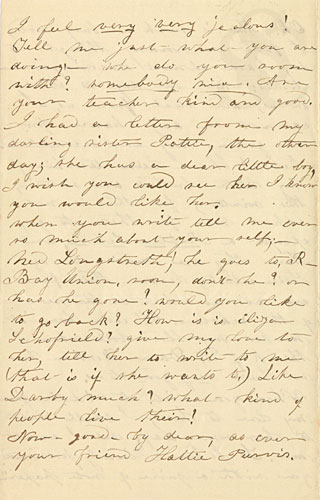 I feel very very jealous!
Tell me just what you are
doing - who do you room
with? somebody nice. Are
your teacher kind are good.
I had a letter from my
darling sister Pattie, the other
day; she has a dear little boy,
I wish you could see her I know
you would like her.
when you write tell me ever
so much about your self;-
Ned Longstreth! he goes to R-
Bay Union, soon, don't he? or
has he gone? would you like
to go back? How is is Eliza
Schofield? give my love to
her, tell her to write to me
(that is if she wants to,) Like
Darby much? what - kind of
people live their!
Now - good - by dear, as ever
your friend Hattie Purvis.